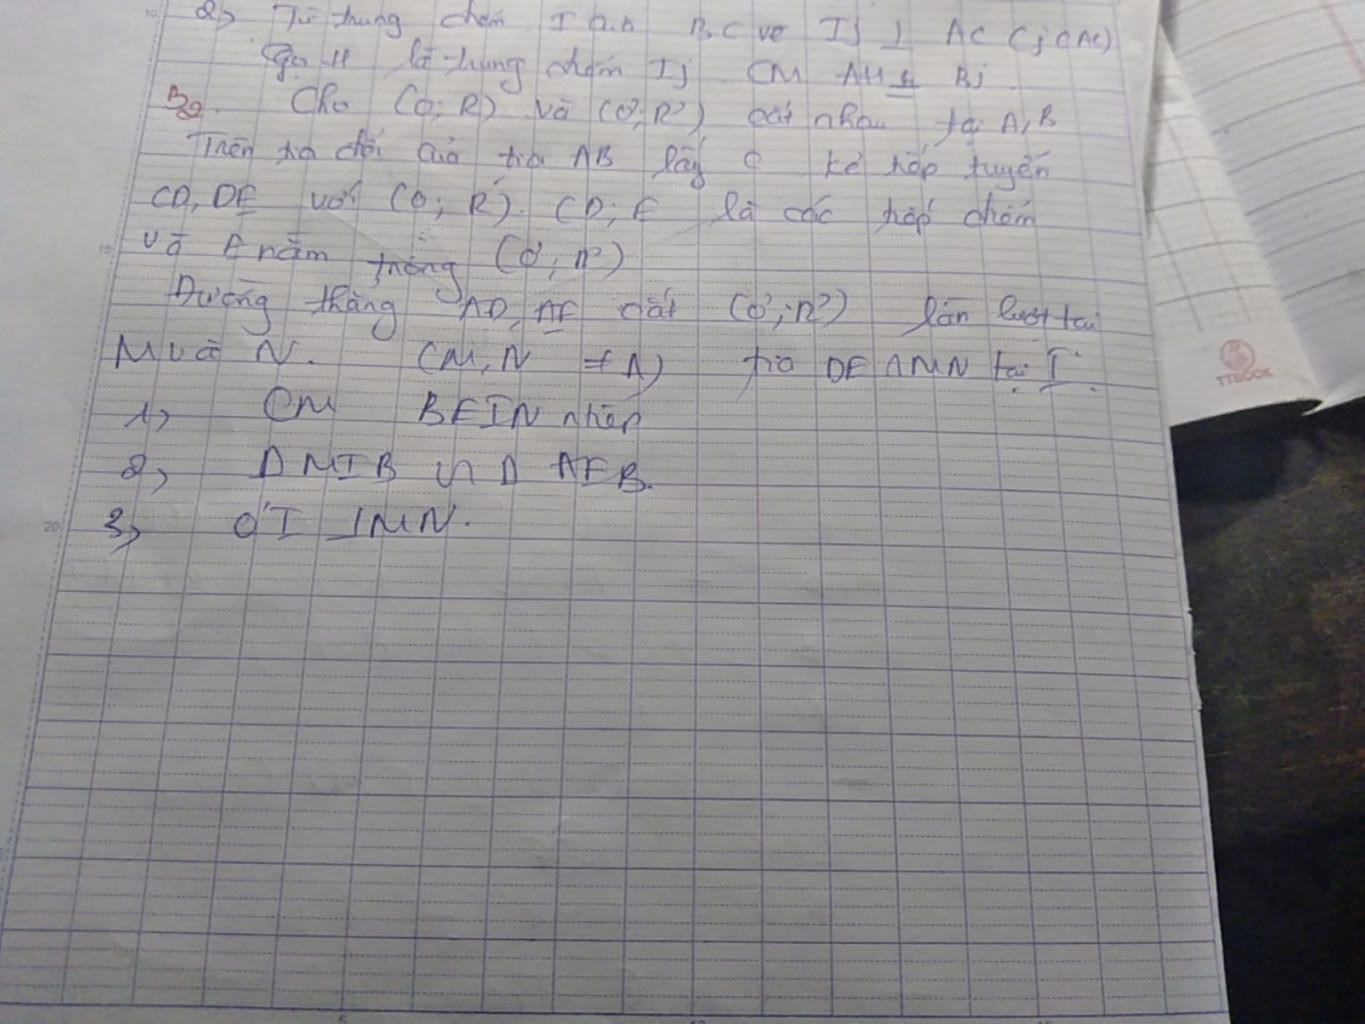 2, Từ trung điểm I của BC vẽ IJ ⊥ AC (J ∈ AC)
Gọi H là trung điểm IJ CM AH ⊥ BJ.
B2. Cho (O; R) và (O'; R') cắt nhau tại A, B
Trên tia đối của tia AB lấy C kẻ tiếp tuyến
CD, DE với (O; R). (D; E là các tiếp điểm
và E nằm trong (O'; R')
Đường thẳng AD, AE cắt (O'; R') lần lượt tại
M và N. (M, N ≠ A) tia DE ∩ MN tại I.
1, CM BEIN nhập
2, Δ MIB ∽ Δ AEB.
3, O'I ⊥ MN.
TTBOOK
10
15
20
5
10